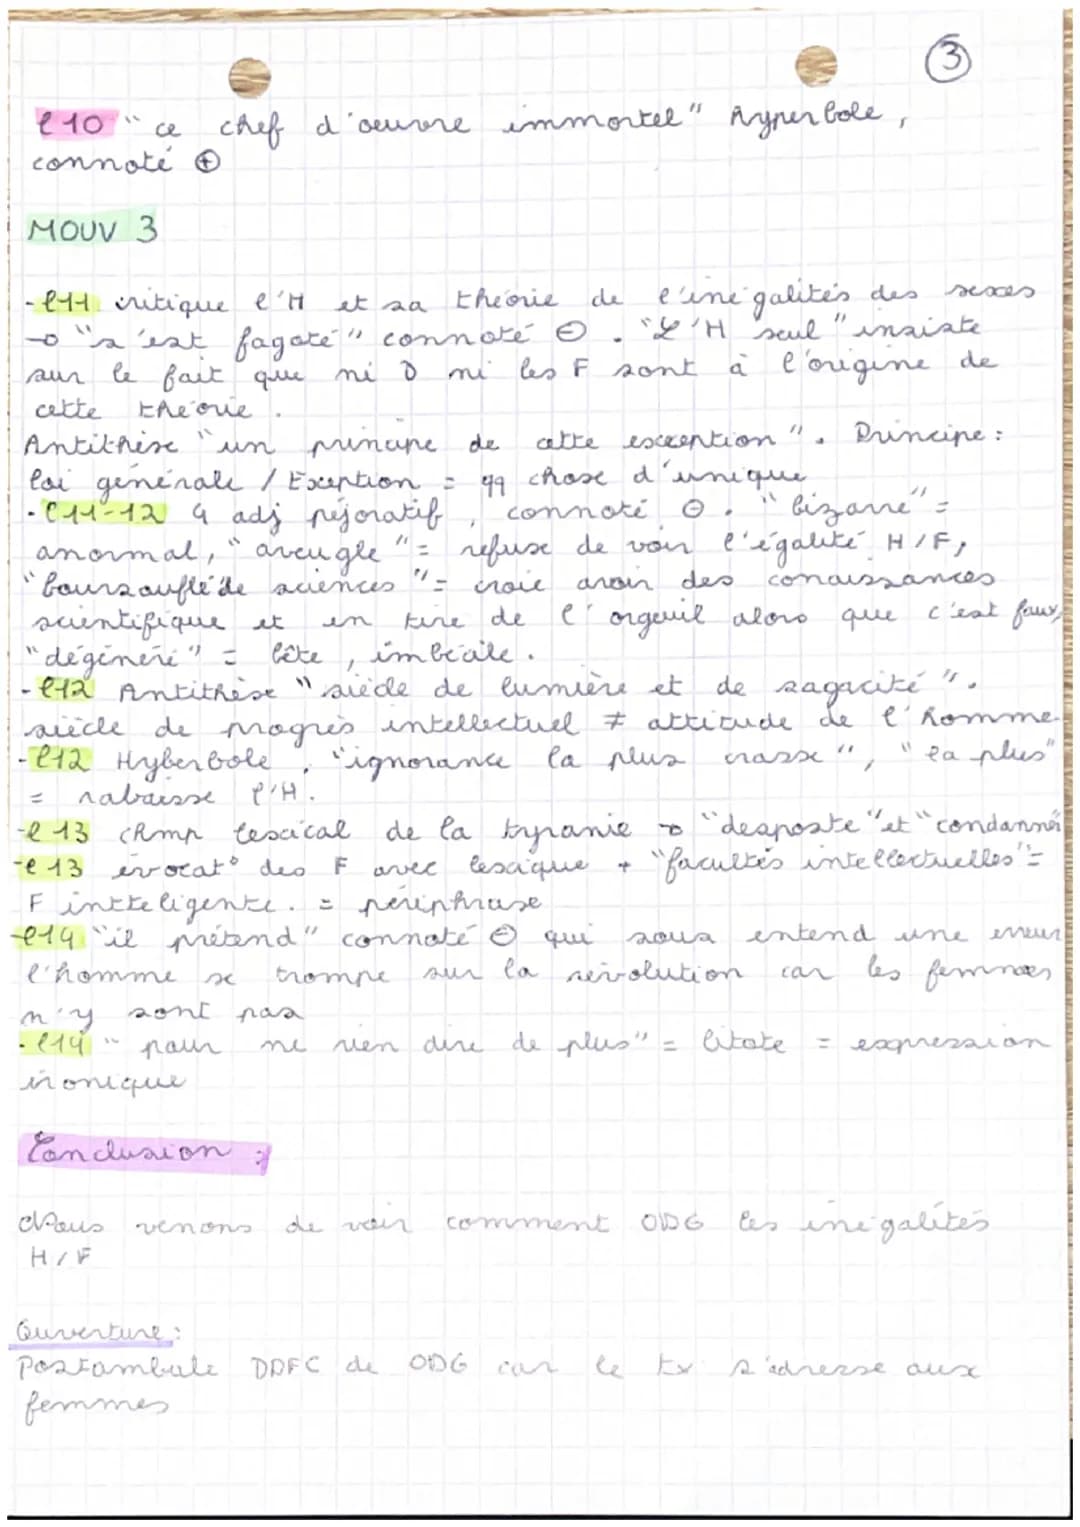 3
l10 "ce chef d'oeuvre immortel" hyperbole,
connoté ⊕
MOUV 3
-l11 critique l'H et sa théorie de l'inégalités des sexes
→ "s'est fagoté" connoté ⊖. "L'H seul" insiste
sur le fait que ni D ni les F sont à l'origine de
cette théorie.
Antithèse "un principe de cette exception". Principe :
loi générale / Exception = qq chose d'unique
-l11-12 4 adj péjoratif, connoté ⊖. "bizarre" =
anormal, "aveugle" = refuse de voir l'égalité H/F,
"boursouflé de sciences" = croie avoir des conaissances
scientifique et en tire de l'orgeuil alors que c'est faux,
"dégénéré" = bête, imbécile.
-l12 Antithèse "siècle de lumière et de sagacité".
siècle de progrès intellectuel ≠ attitude de l'homme.
-l12 Hyberbole, "ignorance la plus crasse", "la plus"
= rabaisse l'H.
-l13 chmp lexical de la tyranie → "desposte" et "condanner
-l13 évocat° des F avec lexique + "facultés intellectuelles" =
F inteligente. = périphrase
-l14 "il prétend" connoté ⊖ qui sous entend une erreur
l'homme se trompe sur la révolution car les femmes
n'y sont pas
-l14 "pour ne rien dire de plus" = litote = expression
ironique
Conclusion :
Nous venons de voir comment ODG les inégalités
H/F
Ouverture :
Postambule DDFC de ODG car le tx s'adresse aux
femmes